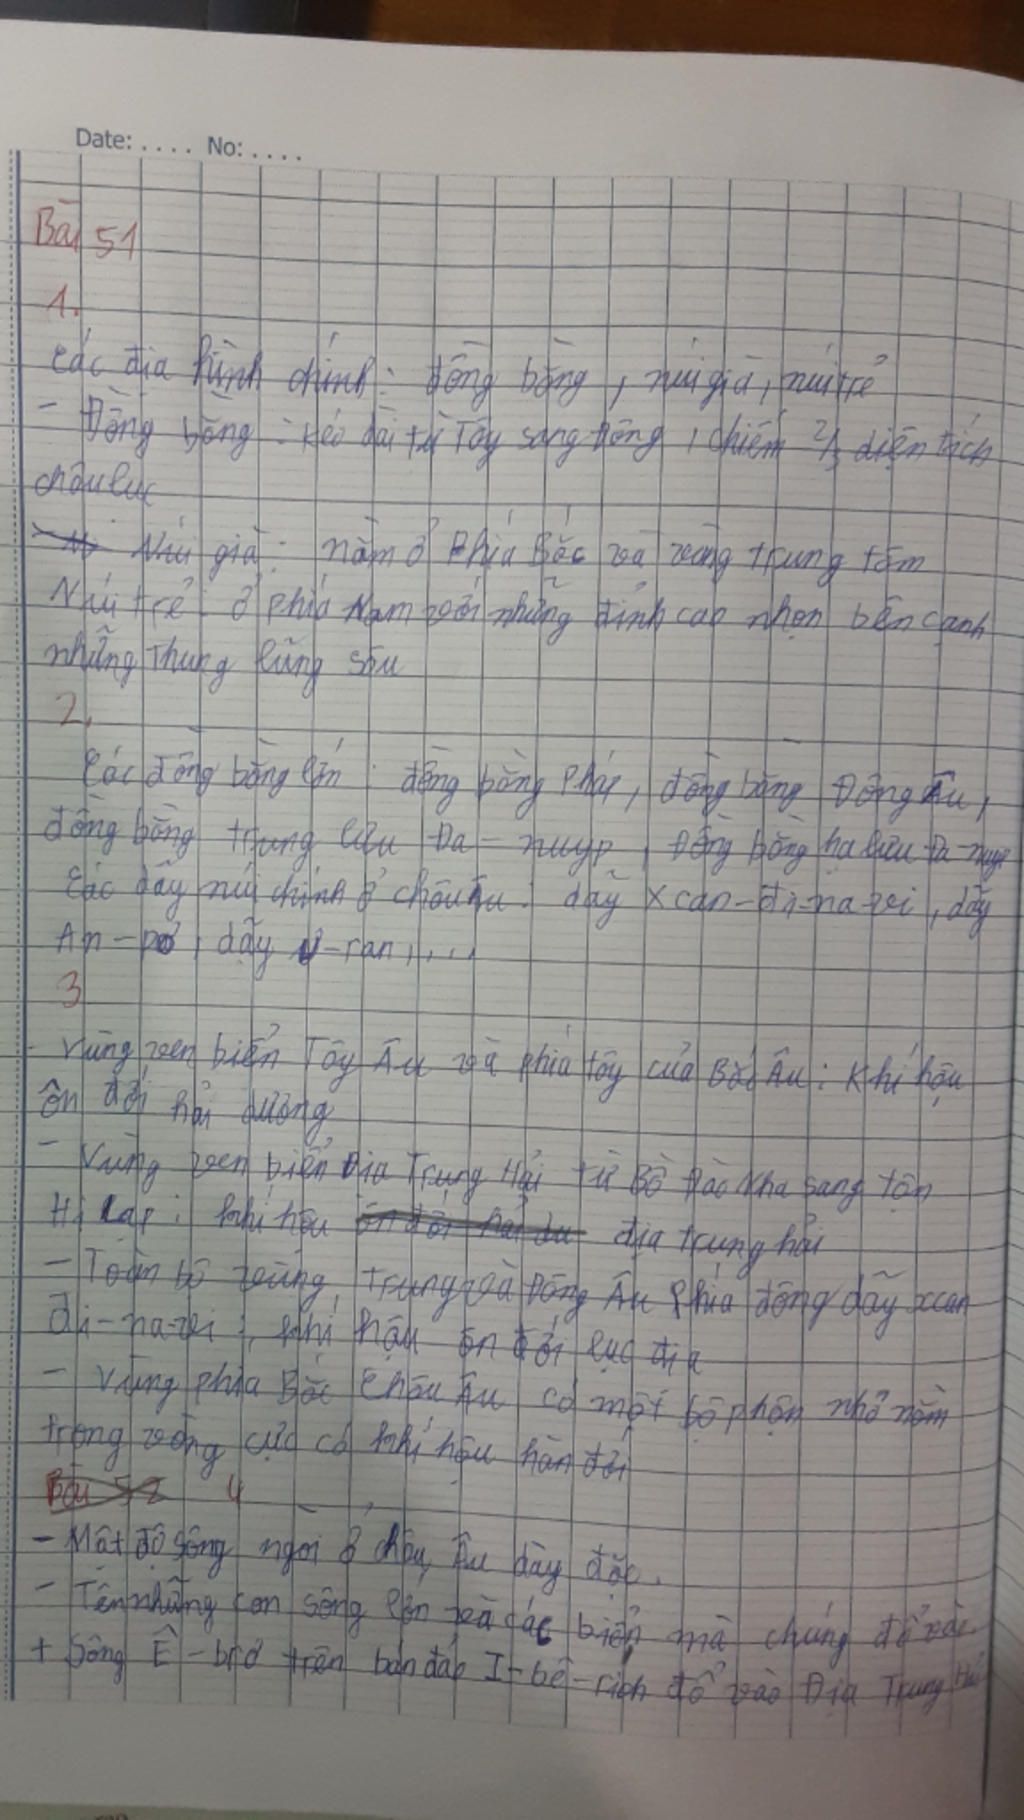 Date: .... No: ....
Bài 51
1.
Các địa hình chính: đồng bằng, núi già, núi trẻ
- Đồng bằng: kéo dài từ Tây sang Đông, chiếm 2/3 diện tích
châu lục
Núi già: nằm ở phía Bắc và vùng trung tâm
Núi trẻ: ở phía Nam với những đỉnh cao nhọn bên cạnh
những thung lũng sâu
2.
Các đồng bằng lớn: đồng bằng Pháp, đồng bằng Đông Âu,
đồng bằng trung lưu Đa-nuyp, Đồng bằng hạ lưu Đa-nuyp
Các dãy núi chính ở châu Âu: dãy Xcan-đi-na-vi, dãy
An-pơ, dãy U-ran,...
3
- Vùng ven biển Tây Âu và phía tây của Bắc Âu: Khí hậu
ôn đới hải dương
- Vùng ven biển Địa Trung Hải từ Bồ Đào Nha sang tận
Hi Lạp: khí hậu ôn đới hải dư địa trung hải
- Toàn bộ vùng Trung và Đông Âu phía đông dãy xcan
đi-na-vi: khí hậu ôn đới lục địa
- Vùng phía Bắc Châu Âu có một bộ phận nhỏ nằm
trong vòng cực có khí hậu hàn đới
Bài 52 4
- Mật độ sông ngòi ở châu Âu dày đặc.
- Tên những con sông lớn và các biển mà chúng đổ vào
+ Sông Ê-brơ trên bán đảo I-bê-rich đổ vào Địa Trung Hải